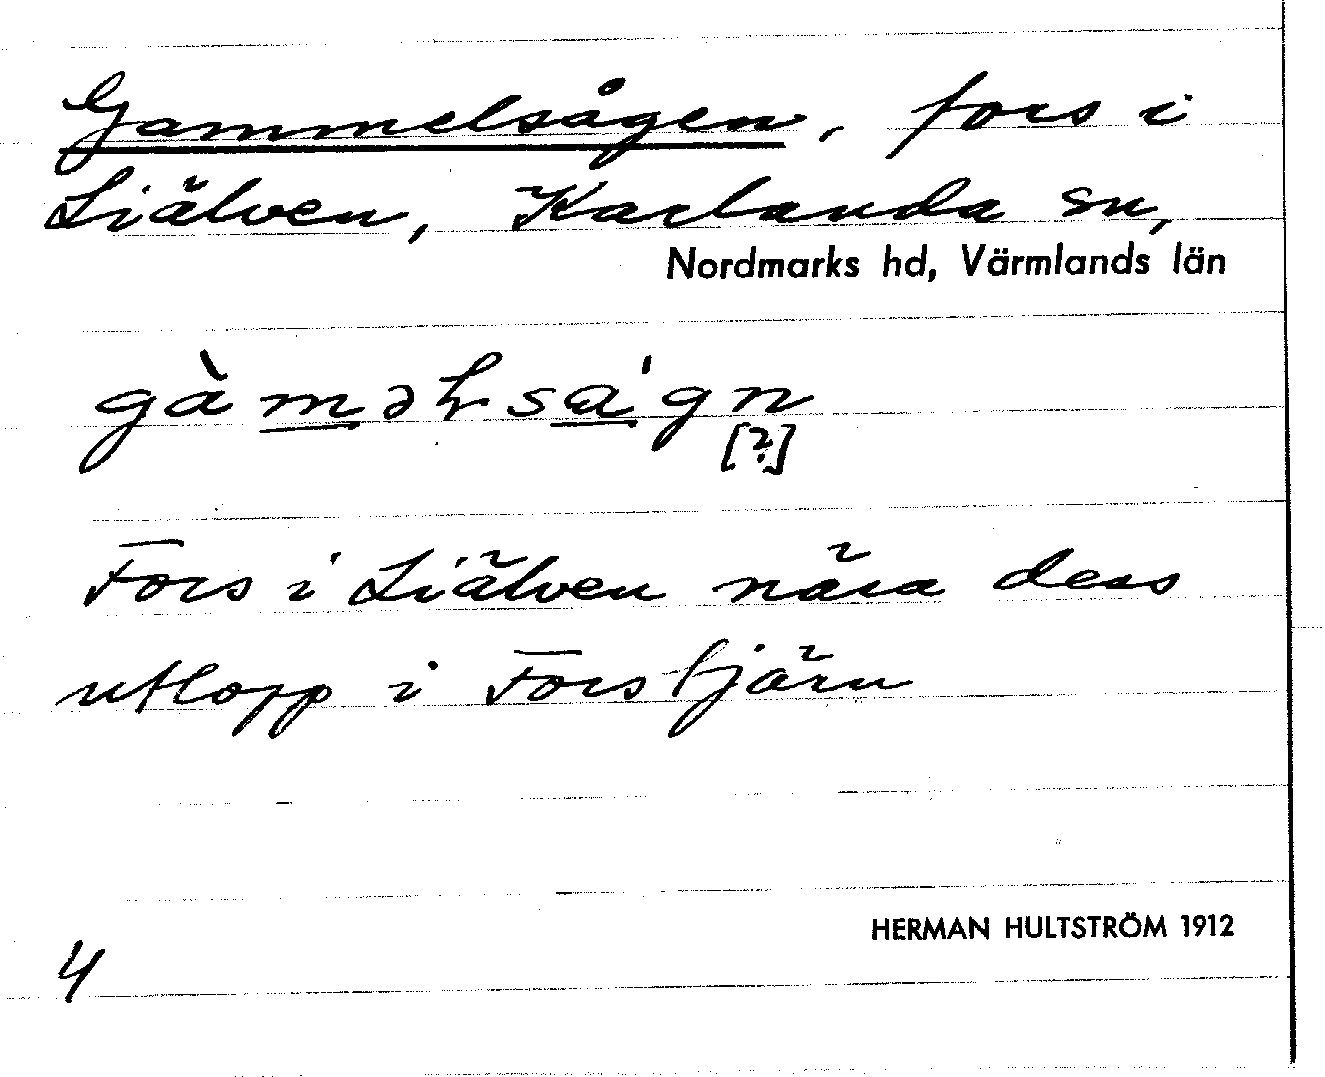 Gammelsågen, fors i
Liälven, Karlanda sn,
Nordmarks hd, Värmlands län
gàməɫsa'gn
[?]
Fors i Liälven nära dess
utlopp i Forstjärn
HERMAN HULTSTRÖM 1912
4